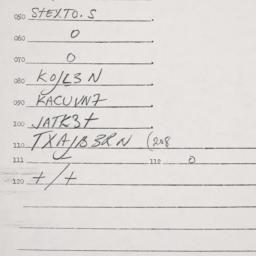 050 STEXTO.S
060 0
070 0
080 KOJL3N
090 KACUVN7
100 JATK3+
110 TXAJB3RN (208
111 110 0
120 +/+